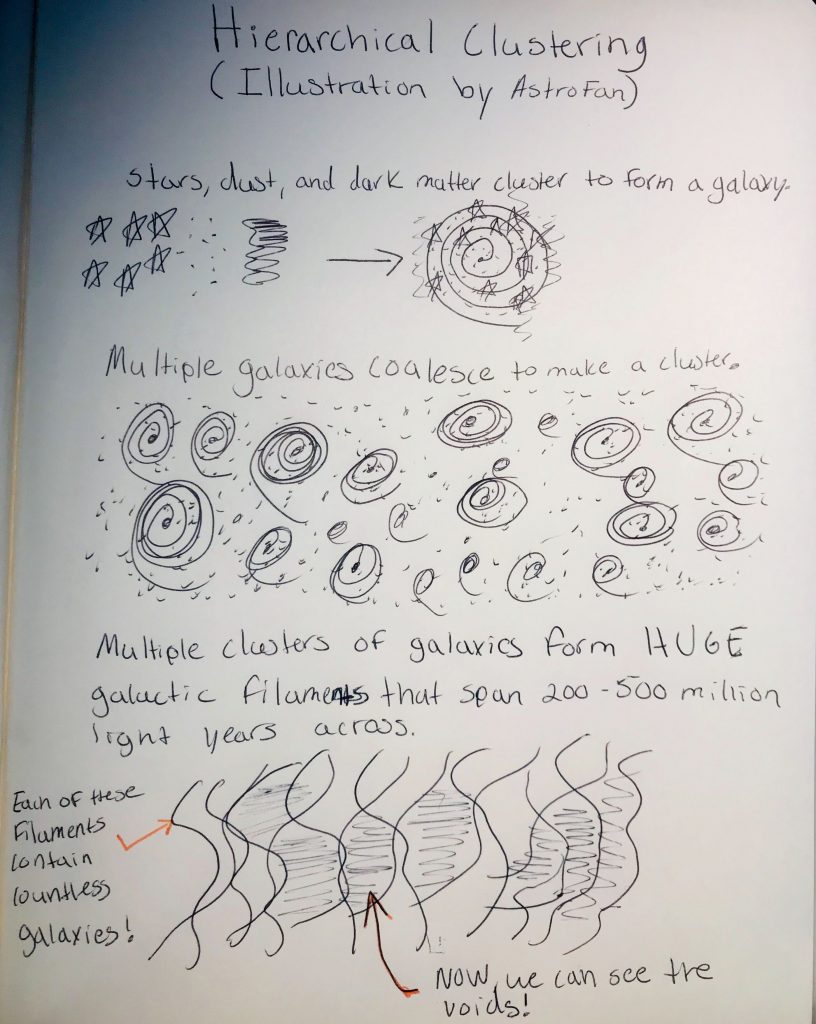 Hierarchical Clustering
(Illustration by AstroFan)
Stars, dust, and dark matter cluster to form a galaxy.
Multiple galaxies coalesce to make a cluster.
Multiple clusters of galaxies form HUGE
galactic filaments that span 200-500 million
light years across.
Each of these
filaments
contain
countless
galaxies!
NOW, we can see the
voids!